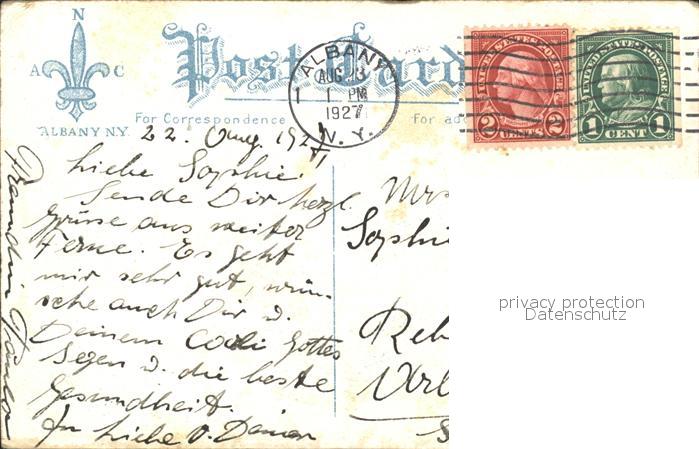 N
A C
ALBANY N.Y.
Post Card
ALBANY
AUG 23
1 PM
1927
N.Y.
UNITED STATES POSTAGE
2 CENTS 2
UNITED STATES POSTAGE
1 CENT 1
For Correspondence
For ad
22. Aug. 1927
Liebe Sophie.
Sende Dir herzl.
Grüsse aus weiter
Ferne. Es geht
mir sehr gut, wün-
sche auch Dir u.
Deinem Gottes
Segen u. die beste
Gesundheit.
In Liebe Deiner
Mrs
Sophi
privacy protection
Datenschutz